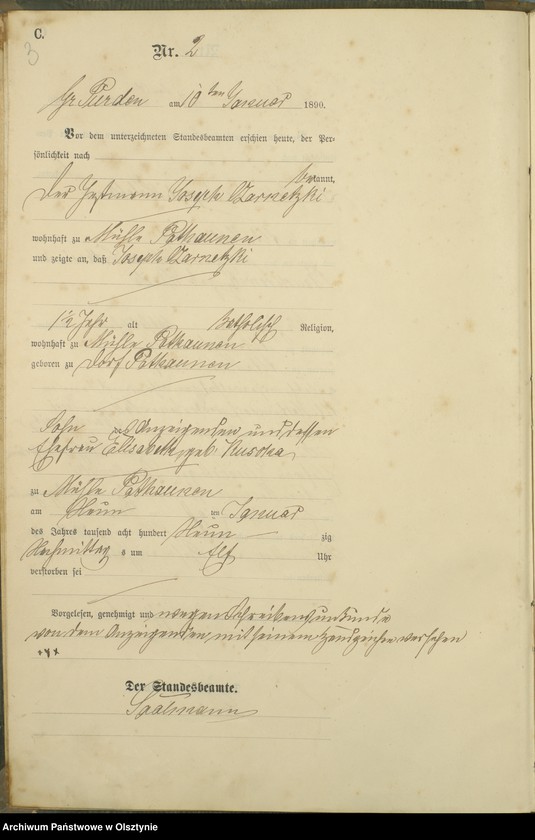 C.
3
Nr. 2
Gr. Purden am 10ten Januar 1890.
Vor dem unterzeichneten Standesbeamten erschien heute, der Per-
sönlichkeit nach
bekannt,
Der Joseph Czarnetzki
wohnhaft zu Mühle Pathaunen
und zeigte an, daß Joseph Czarnetzki
1½ Jahr alt katholisch Religion,
wohnhaft zu Mühle Pathaunen
geboren zu Dorf Pathaunen
Sohn des Anzeigenden und dessen
Ehefrau Elisabeth geb.
zu Mühle Pathaunen
am Neun ten Januar
des Jahres tausend acht hundert Neun zig
Nachmittag s um Elf Uhr
verstorben sei
Vorgelesen, genehmigt und wegen Schreibensunkunde
von dem Anzeigenden, mit seinem Handzeichen versehen
+++
Der Standesbeamte.
Saalmann
Archiwum Państwowe w Olsztynie